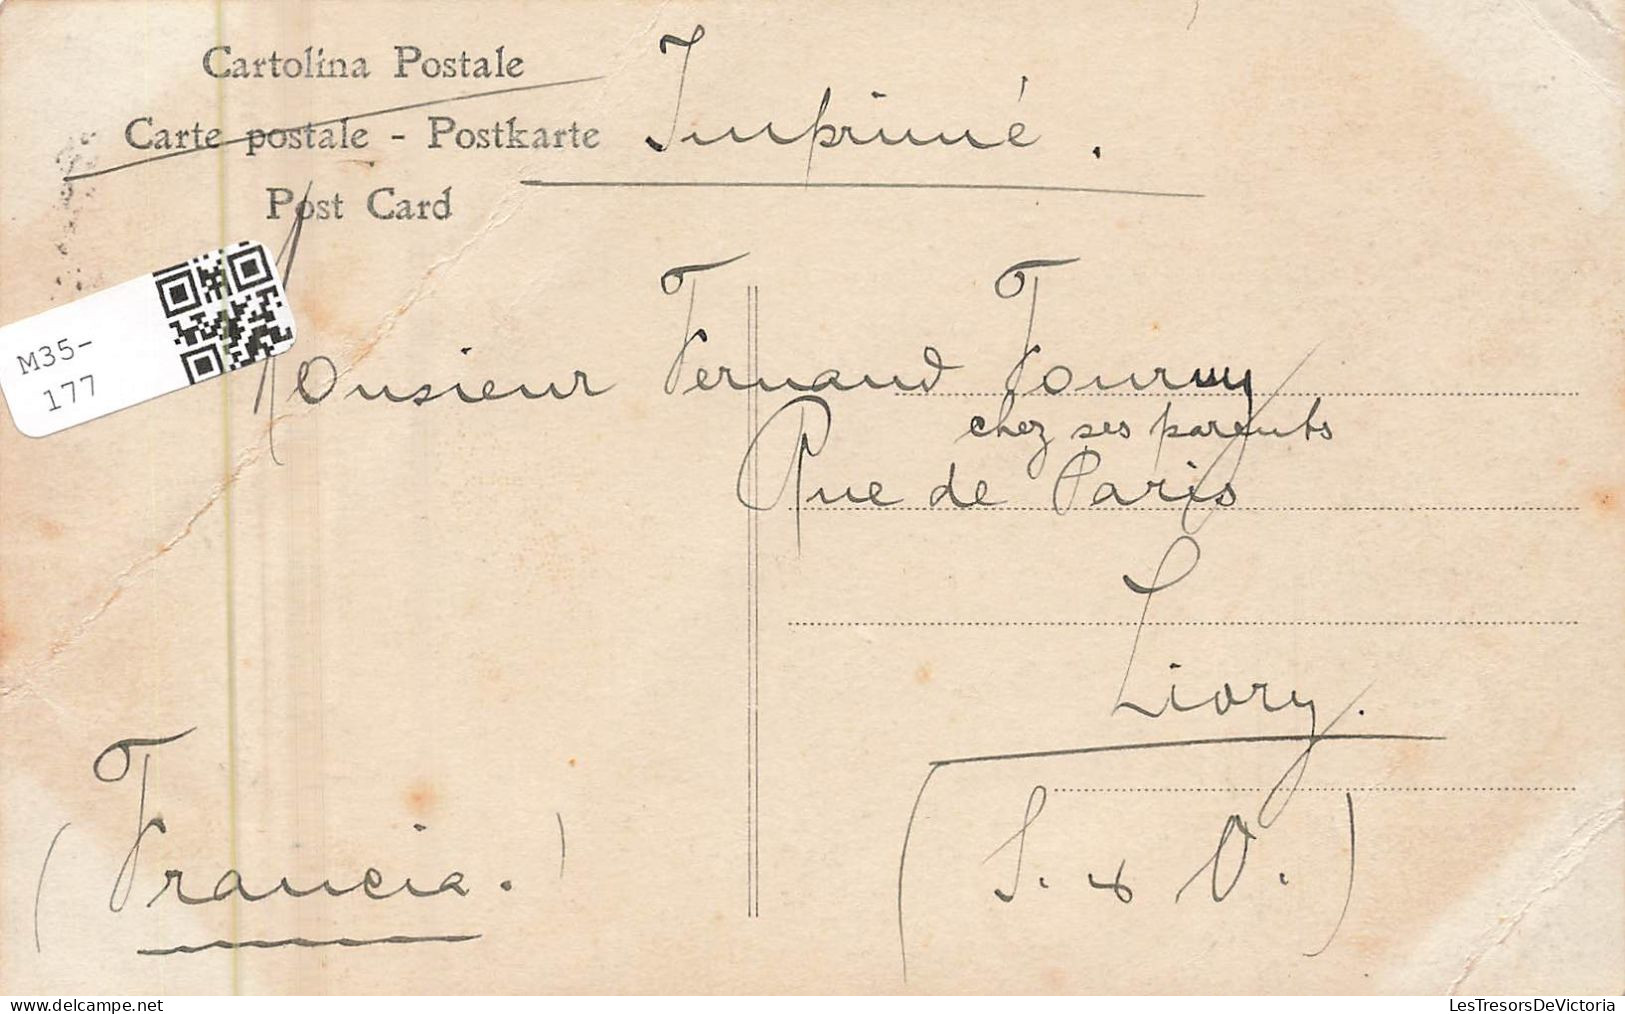 Cartolina Postale
Carte postale - Postkarte
Post Card
Imprimé.
M35-
177
Monsieur Fernand Fourny
chez ses parents
Rue de Paris
Livry.
(S. & O.)
(Francia.)
LesTresorsDeVictoria